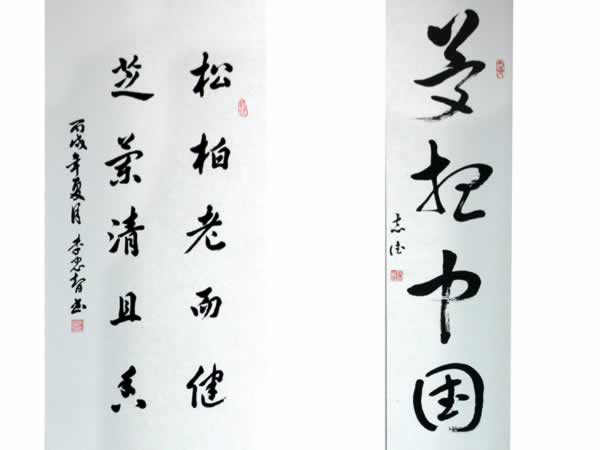 松柏老而健
芝蘭清且香
丙戌年夏月 李忠智书
梦想中国